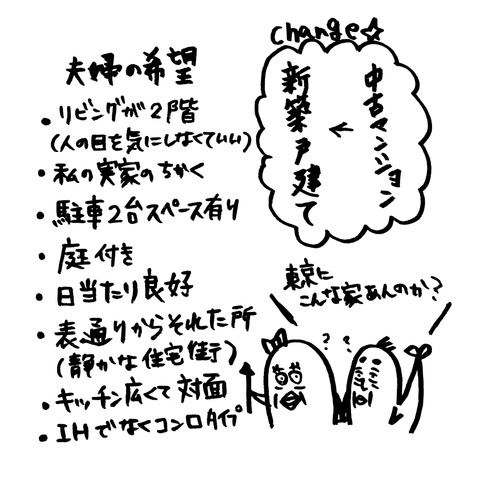 夫婦の希望
・リビングが2階
(人の目を気にしなくていい)
・私の実家のちかく
・駐車2台スペース有り
・庭付き
・日当たり良好
・表通りからそれた所
(静かな住宅街)
・キッチン広くて対面
・IHでなくコンロタイプ
change☆
中古マンション
←
新築戸建て
東京に
こんな家あんのか?
? ?